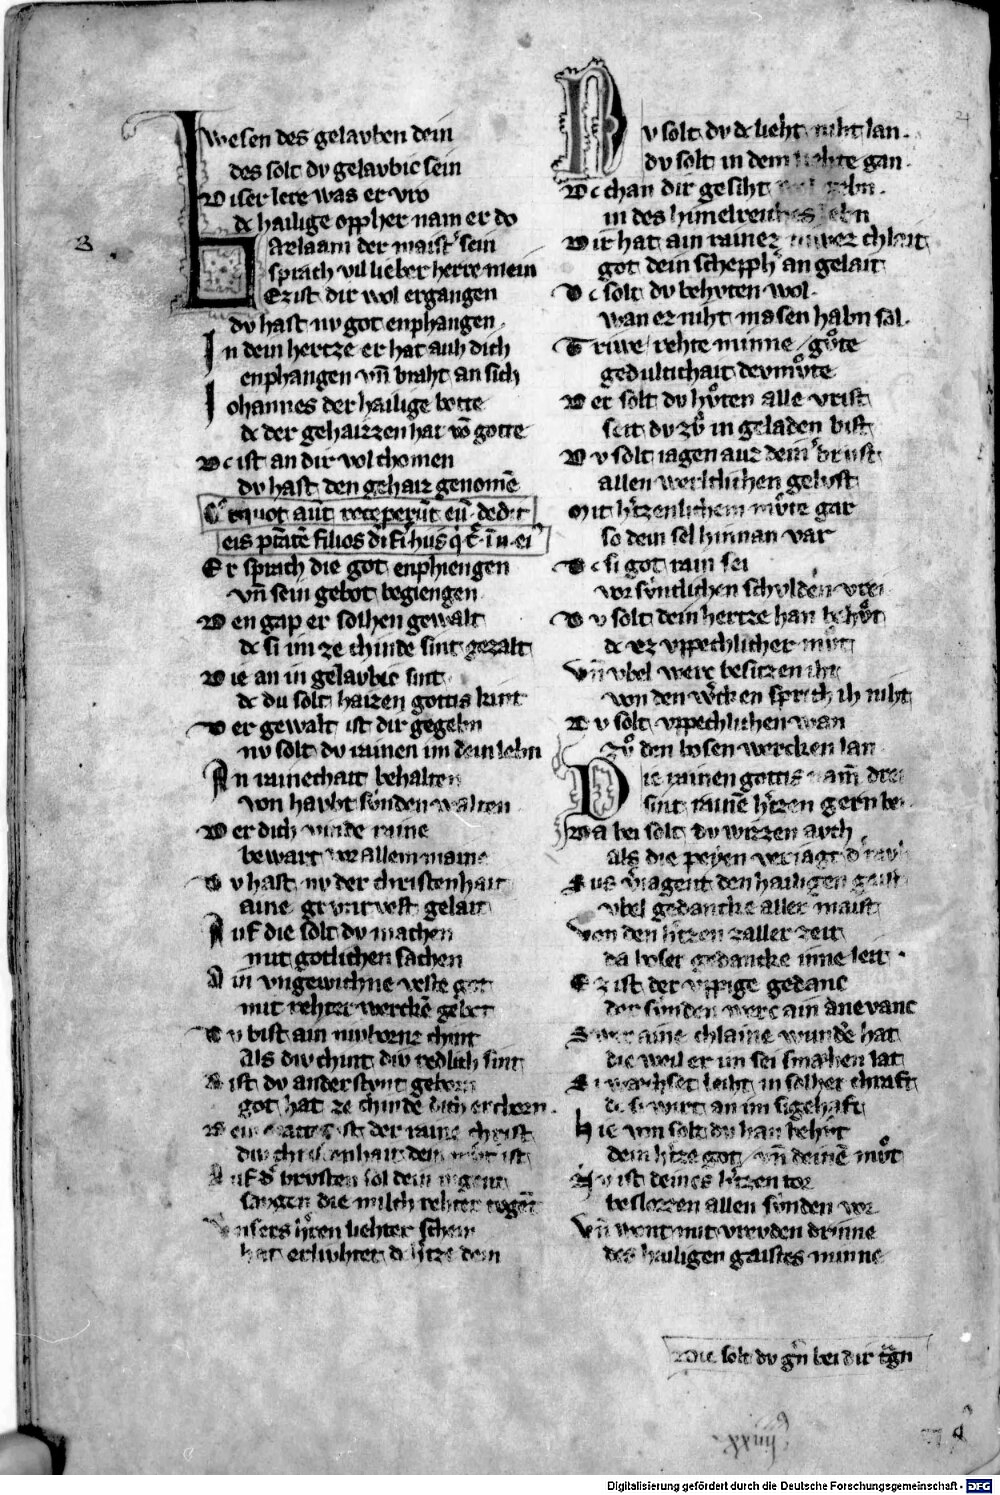 B
wesen des gelavben dein
des solt dv gelavbic sein
Diser lere was er vro
dc hailige oppher nam er do
Barlaam der maist' sein
sprach vil lieber herre mein
Ez ist dir wol ergangen
dv hast nv got enphangen
In dein hertze er hat auh dich
enphangen vn̄ braht an sich
Johannes der hailige botte
dc der gehaizzen hat vō gotte
Dc ist an dir vol chomen
dv hast den gehaiz genomē
Quotquot aūt receperūt eū dedit
eis ptātē filios di fi
Er sprach die got enphiengen
vn̄ sein gebot begiengen
Den gap er solhen gewalt
dc si im ze chinde sint gezalt
Die an in gelavbic sint
dc du solt haizen gottis kint
Der gewalt ist dir gegebn
nv solt dv rainen im dein lebn
An rainechait behalten
von havbt sünden walten
Der dich vinde raine
bewart vor allem maine
Dv hast nv der christenhait
aine grvntvest gelait
Auf die solt dv machen
mit gotlichen sachen
Ain vngewichne veste got
mit rehter werckē gebot
Dv bist ain niwbornz chint
Als div chint div redlich sint
ist dv anderstvnt geborn
got hat ze chinde dich erchorn
ist der raine christ
div christenhait dein mvter ist
Auf d' brvsten sol dein
saugen die milch rehter tvgēt
Vnsers h'ren liehter schein
hat erlivhtet dc h'tze dein
Dv solt dv dc lieht niht lan
dv solt in dem liehte gan
Dc chan dir gesiht gebn
in des himelreiches lebn
Dir hat ain rainez niwez chlait
got dein scheppḣ an gelait
Dc solt dv behvten wol
wan ez niht masen habn sol
Triwe rehte minne gvͦte
gedultichait deymvͦte
Der solt dv hvͦten alle vrist
seit dv zvͦ in geladen bist
Dv solt iagen auz dein' brust
allen werltlichen gelust
Mit h'tzenlichem mvͦte gar
so dein sel hinnan var
Dc si got rain sei
vor sv̈ntlichen schvlden vrei
Dv solt dein hertze han behvͦt
dc ez vppechlicher mvͦt
Vn̄ vbel werc besitzen iht
von den w'cken sprich ih niht
Dv solt vppechlichen wan
zvͦ den bosen wercken lan
Die rainen gottis nam̄ drei
sint rainē h'tzen gern bei
Da bei solt dv wizzen avch
als die peyen veriagt d' ravch
Sus v'iagent den hailigen gaist
vbel gedancke aller maist
Von den h'tzen zaller zeit
da boser gedancke inne leit
Ez ist der vppige gedanc
der sünden werc ain anevanc
Swer aine chlaine wunde hat
die weil er im sei smahen lat
Si wachset leiht in solher chraft
dc si wirt an im sigehaft
Hie von solt dv han behvt
dein h'tze got vn̄ deinē mvͦt
Nv ist deines h'tzen tor
beslozzen allen sünden vor
Vn̄ wont mit vreuden drinne
des hailigen gaistes minne
Die solt dv g'n bei dir tᵃgn
xxiiij
Digitalisierung gefördert durch die Deutsche Forschungsgemeinschaft - DFG